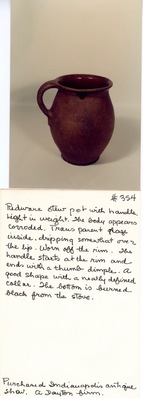 # 354
Redware stew pot with handle,
light in weight. The body appears
corroded. Transparent glaze
inside, dripping somewhat over
the lip. Worn off the rim. The
handle starts at the rim and
ends with a thumb dimple. A
good shape with a neatly defined
collar. The bottom is burned
black from the stove.
Purchased Indianapolis antique
show. A Dayton firm.